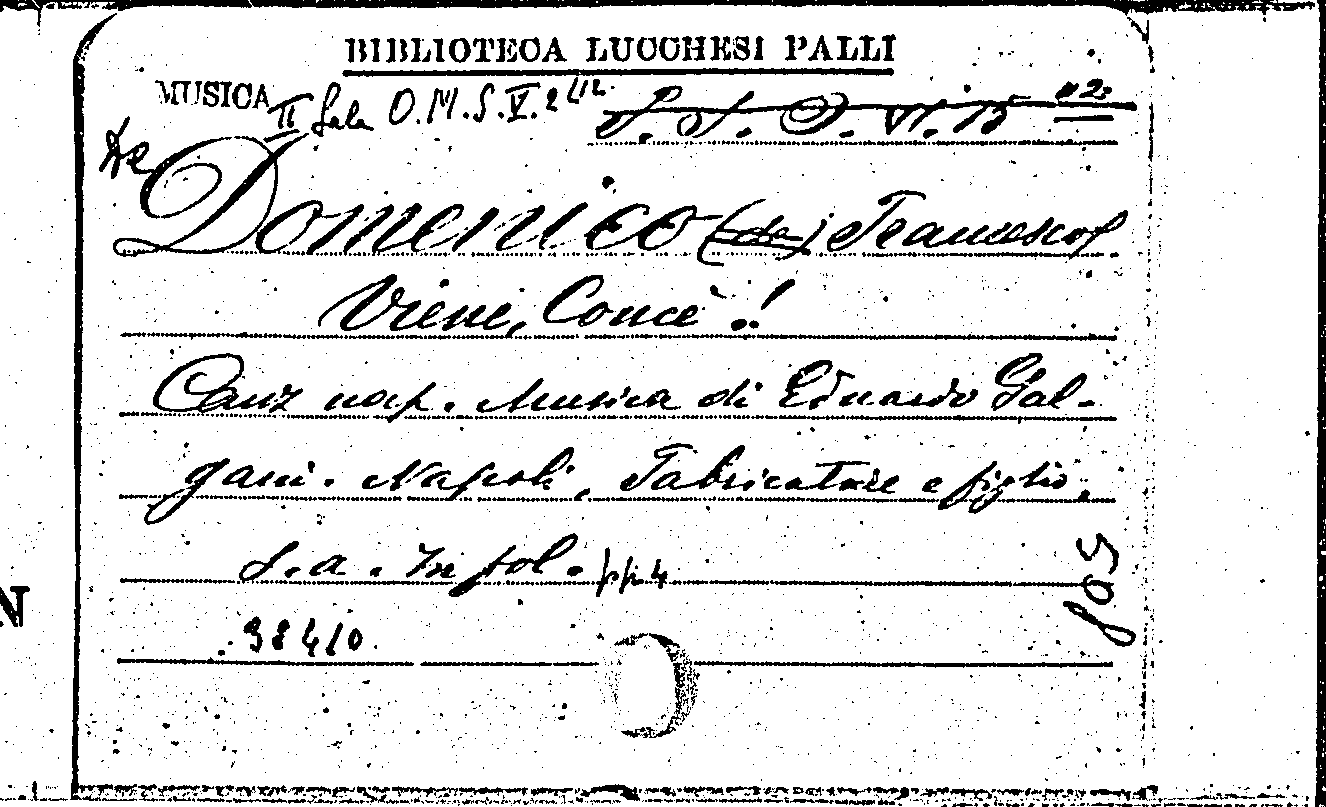 BIBLIOTECA LUCCHESI PALLI
MUSICA II Sala O.M.S.V.2 412.
S. S. D. VI. 15 n2:
De Domenico (de) Francesco
Viene, Concè!
Canz nap. Musica di Eduardo Gal-
gani. Napoli, Fabricatore e figlio,
S.a. In fol. pp. 4
98410
N